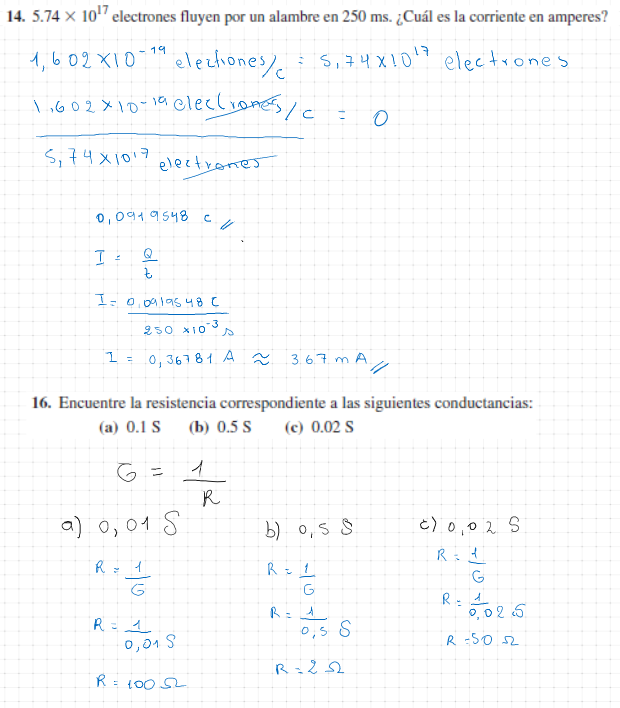 14. 5.74 × 10¹⁷ electrones fluyen por un alambre en 250 ms. ¿Cuál es la corriente en amperes?
1,602 × 10⁻¹⁹ electrones/c = 5,74 × 10¹⁷ electrones
1,602 × 10⁻¹⁹ electrones/c = Q
5,74 × 10¹⁷ electrones
0,0919548 C
I = Q/t
I = 0,0919548 C
250 × 10⁻³ s
I = 0,36781 A ≈ 367 mA
16. Encuentre la resistencia correspondiente a las siguientes conductancias:
(a) 0.1 S (b) 0.5 S (c) 0.02 S
G = 1/R
a) 0,01 S b) 0,5 S c) 0,02 S
R = 1/G R = 1/G R = 1/G
R = 1/0,01 S R = 1/0,5 S R = 1/0,02 S
R = 100 Ω R = 2 Ω R = 50 Ω